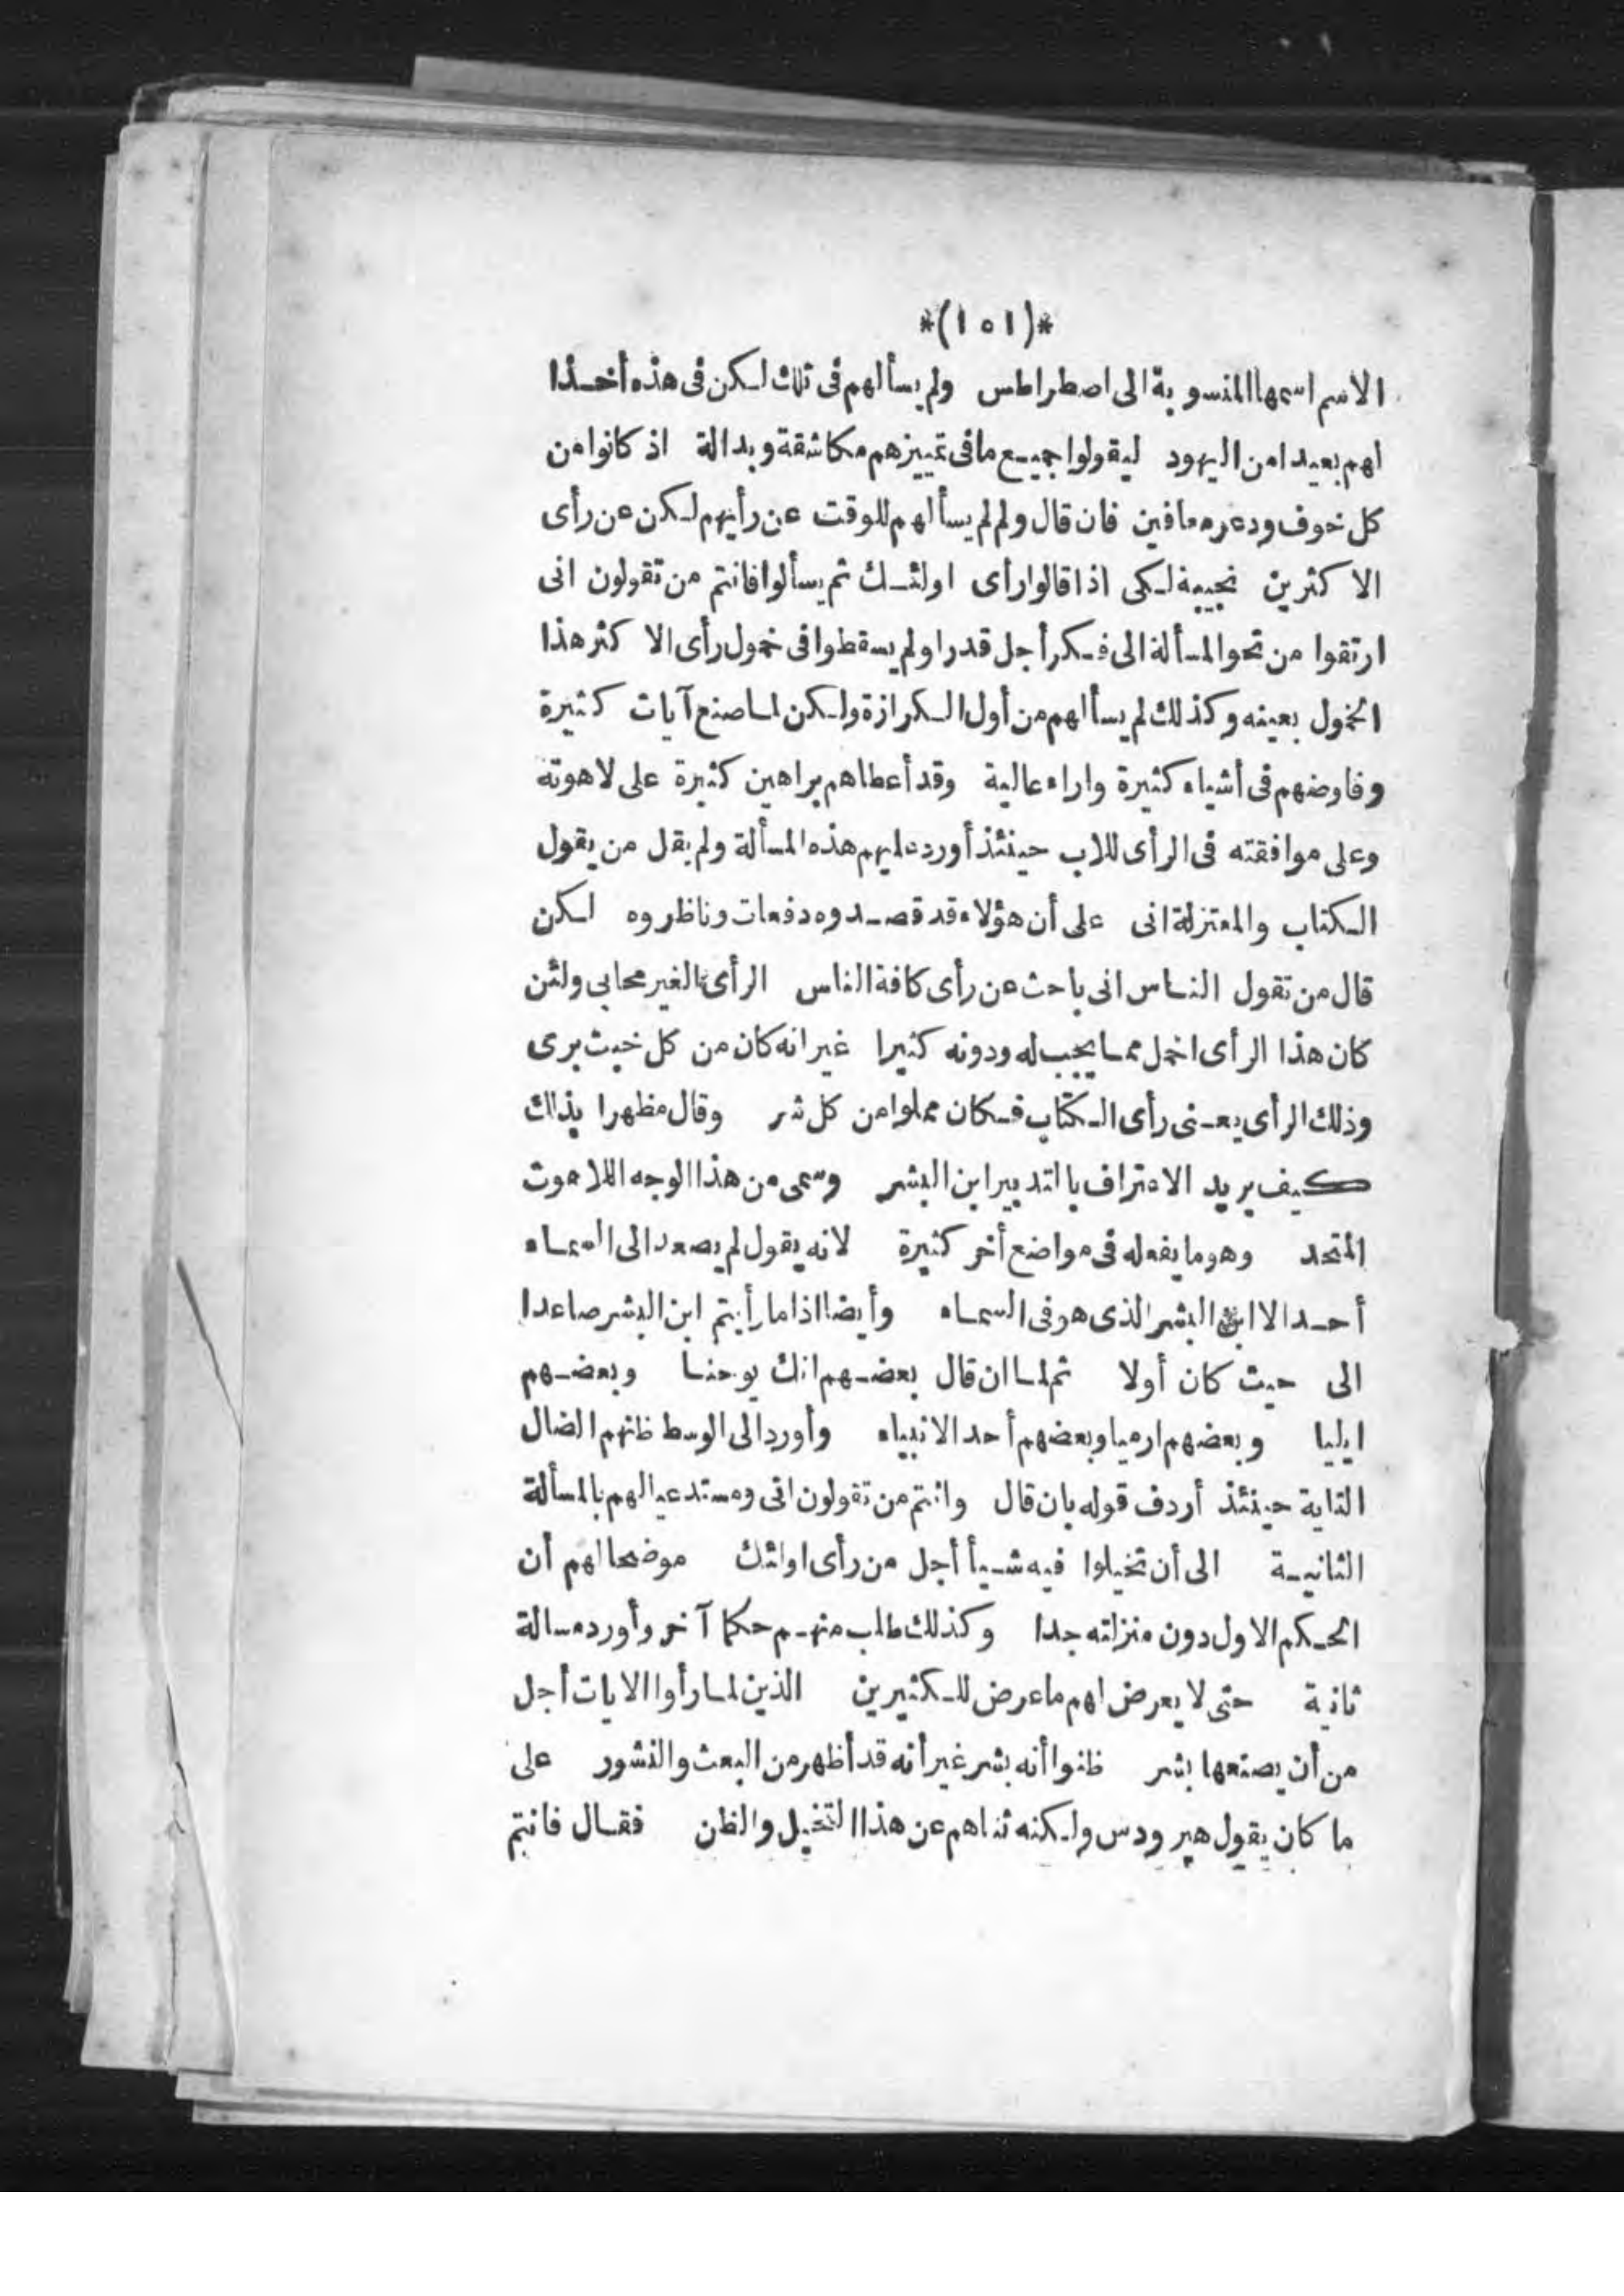 *(١٥١)*
الاسم اسمها المنسوبة الى اصطراطس ولم يسألهم فى تلك لكن فى هذه أخذا
لهم بعيدا من اليهود ليقولوا جميع ما فى تمييزهم مكاشفة وبدالة اذ كانوا من
كل خوف وذعر معافين فان قال ولم لم يسألهم للوقت عن رأيهم لكن عن رأى
الاكثرين نجيبه لكى اذا قالوا رأى اولئك ثم يسألوا فانتم من تقولون انى
ارتقوا من نحو المسألة الى فكر أجل قدرا ولم يسقطوا فى خمول رأى الاكثر هذا
الخمول بعينه وكذلك لم يسألهم من أول الكرازة ولكن لما صنع آيات كثيرة
وفاوضهم فى أشياء كثيرة واراء عالية وقد أعطاهم براهين كثيرة على لاهوته
وعلى موافقته فى الرأى للاب حينئذ أورد عليهم هذه المسألة ولم يقل من يقول
الكتاب والمعتزلة انى على أن هؤلاء قد قصدوه دفعات وناظروه لكن
قال من تقول الناس انى باحث عن رأى كافة الناس الرأى الغير محابى ولئن
كان هذا الرأى اخمل مما يجب له ودونه كثيرا غير انه كان من كل خبث برى
وذلك الرأى يعنى رأى الكتاب فكان مملوا من كل شر وقال مظهرا بذلك
كيف يريد الاعتراف بالتدبير ابن البشر وسمى من هذا الوجه اللاهوت
المتحد وهو ما يفعله فى مواضع أخر كثيرة لانه يقول لم يصعد الى السماء
أحد الا ابن البشر الذى هو فى السماء وأيضا اذا ما رأيتم ابن البشر صاعدا
الى حيث كان أولا ثم لما ان قال بعضهم انك يوحنا وبعضهم
ايليا وبعضهم ارميا وبعضهم أحد الانبياء وأورد الى الوسط ظنهم الضال
التاية حينئذ أردف قوله بان قال وانتم من تقولون انى ومستدعيا لهم بالمسألة
الثانية الى أن تخيلوا فيه شيأ أجل من رأى اولئك موضحا لهم أن
الحكم الاول دون منزلته جدا وكذلك طلب منهم حكما آخر وأورد مسالة
ثانية حتى لا يعرض لهم ما عرض للكثيرين الذين لما رأوا الايات أجل
من أن يصنعها بشر ظنوا أنه بشر غير أنه قد أظهر من البعث والنشور على
ما كان يقول هيرودس ولكنه ثناهم عن هذا التخيل والظن فقال فانتم